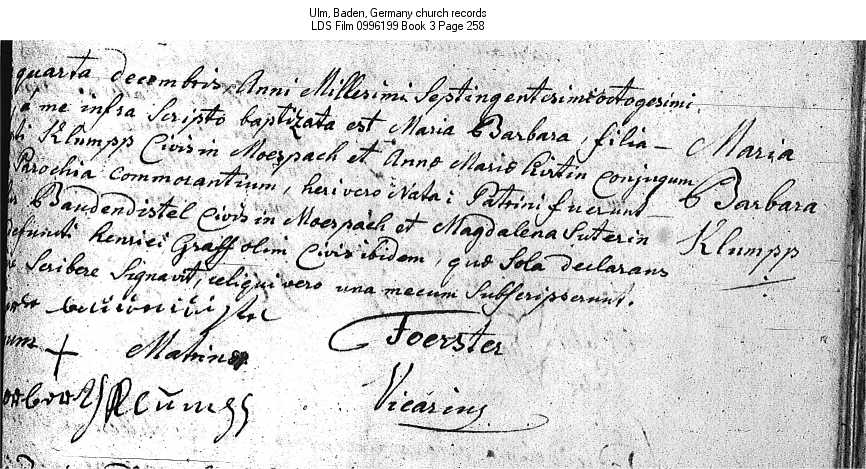 Ulm, Baden, Germany church records
LDS Film 0996199 Book 3 Page 258
quarta decembris Anni Millesimi Septingentesimi octogesimi
a me infra Scripto baptizata est Maria Barbara, filia
Klumpp Civis in Moespach et Annæ Mariæ Kirtin Conjugum
Parochia commorantium, heri vero Nata; Patrini fuerunt
Baudendistel Civis in Moespach et Magdalena Suterin
defuncti Henrici Graff olim Civis ibidem, quæ Sola declarans
Scribere Signavit, reliqui vero una mecum Subscripserunt.
Maria
Barbara
Klumpp
+
Foerster
Vicarius